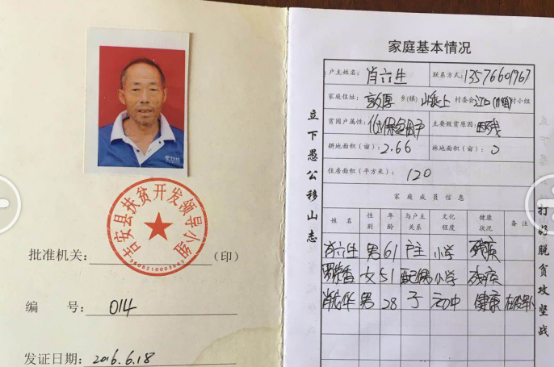 吉安县扶贫开发领导小组
批准机关：（印）
编 号：014
发证日期：2016.6.18
立下愚公移山志
家庭基本情况
户主姓名：肖六生 联系方式：13576601967
家庭住址：敦厚 乡(镇) 村委会 村小组
贫困户属性：低保贫困户 主要致贫原因：因残
耕地面积（亩）：2.66 林地面积（亩）：0
住房面积（平方米）：120
家庭成员信息
姓名 性别 年龄 与户主关系 文化程度 健康状况 备注
肖六生 男 61 户主 小学 残疾
女 51 配偶 小学 残疾
男 28 子 初中 健康
打好脱贫攻坚战